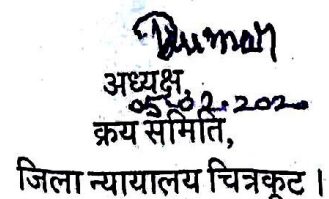 अध्यक्ष,
05.02.202
क्रय समिति,
जिला न्यायालय चित्रकूट।